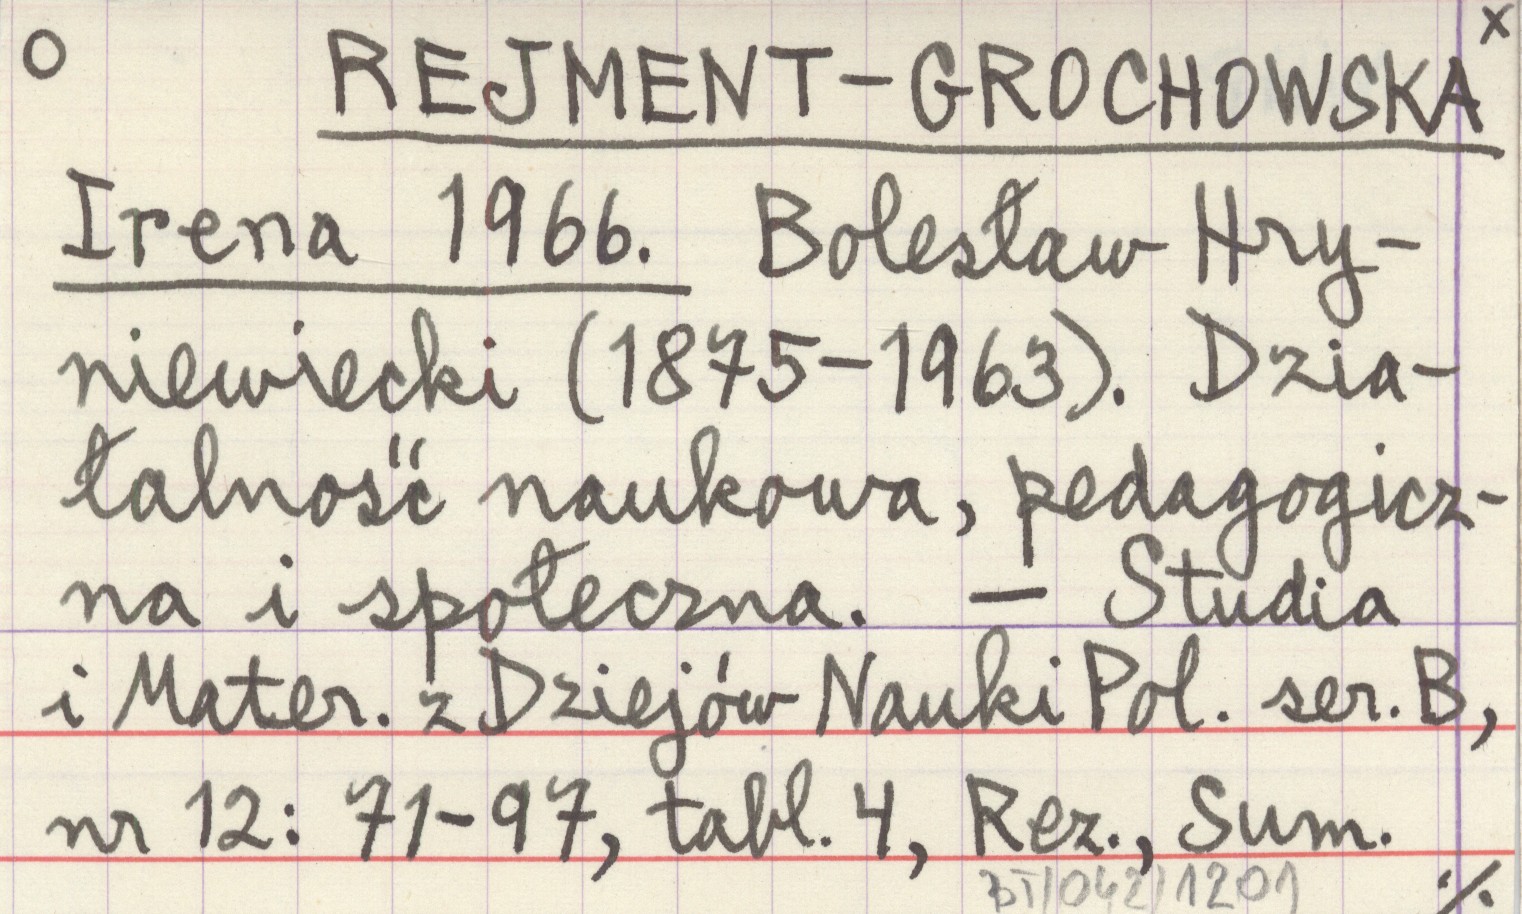 O REJMENT-GROCHOWSKA x
Irena 1966. Bolesław Hry-
niewiecki (1875-1963). Dzia-
łalność naukowa, pedagogicz-
na i społeczna. — Studia
i Mater. z Dziejów Nauki Pol. ser. B,
nr 12: 71-97, tabl. 4, Rez., Sum.
BT/042/1201 ·/.